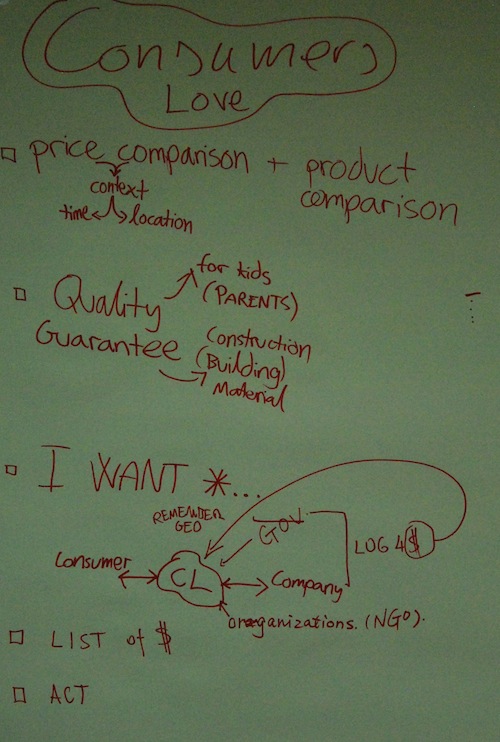 Consumers
Love
price comparison + product
comparison
context
time location
for kids
Quality (PARENTS)
Guarantee Construction
(Building)
Material
I WANT *...
REMEMBER
GEO
GOV.
LOG 4 $
Consumer
CL
Company
oraganizations. (NGO).
LIST of $
ACT